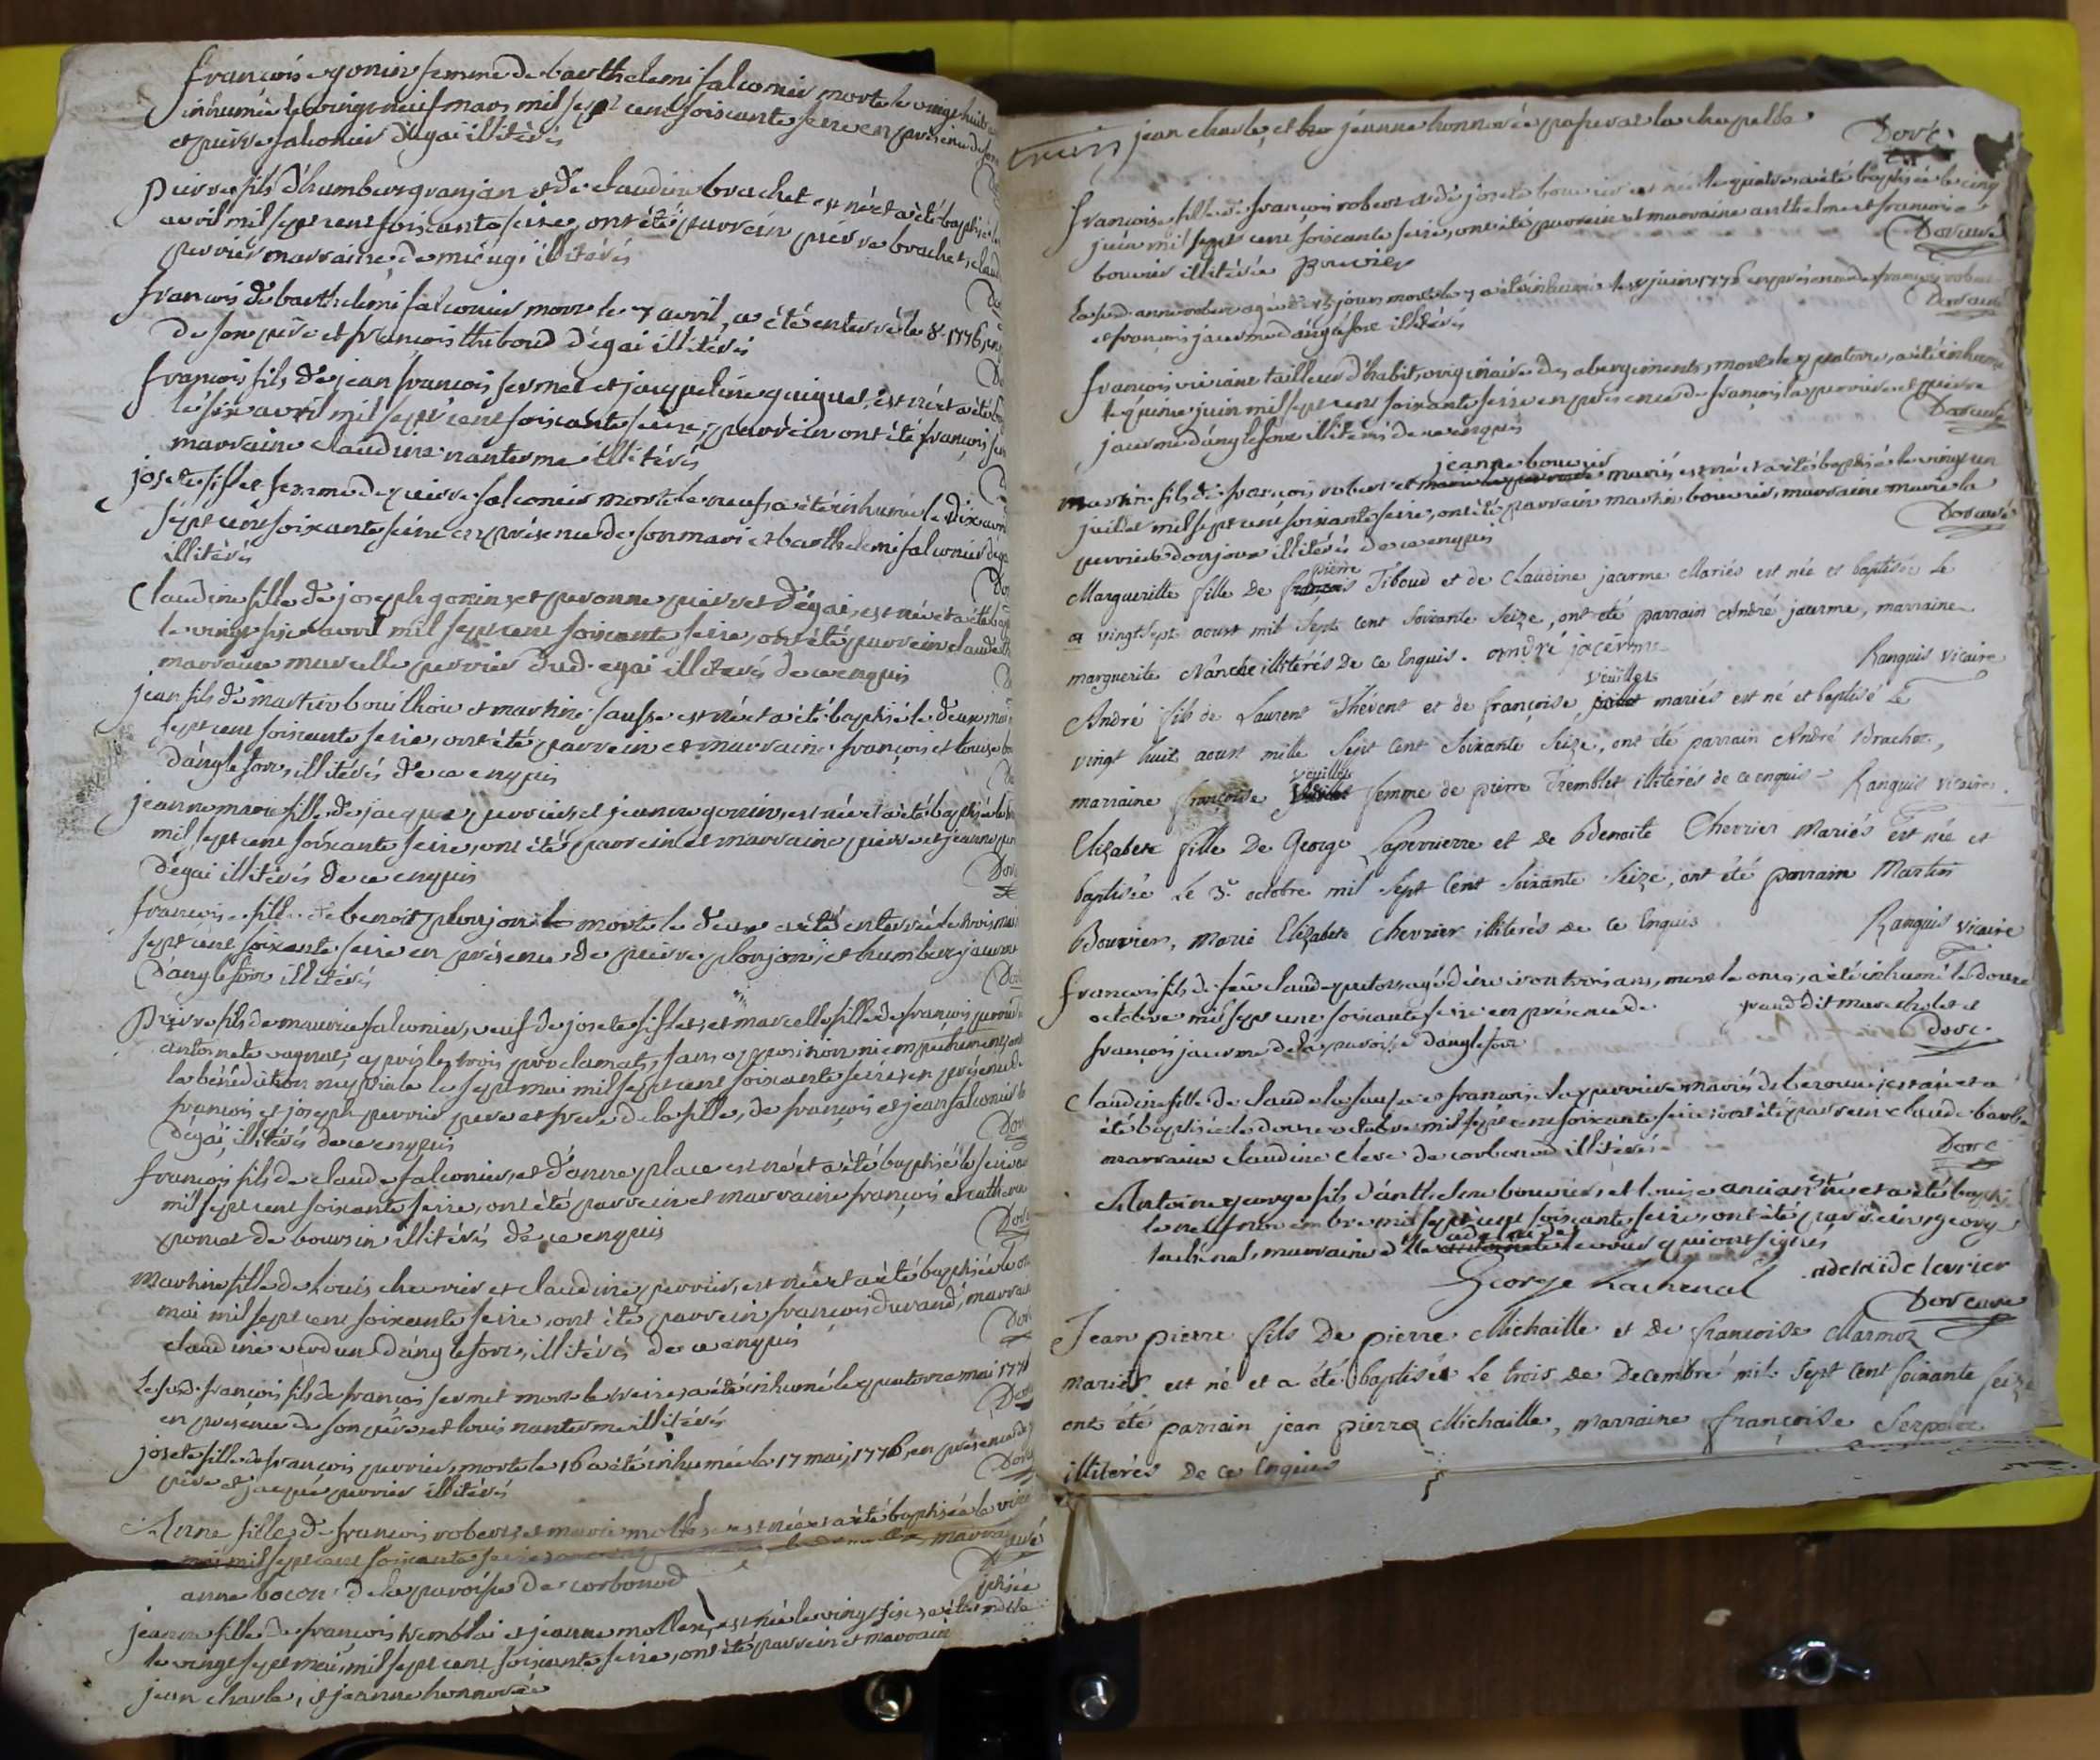 françoise gonin femme de barthelemi falconier morte le vingt huit
inhumée le vingt neuf mars mil sept cent soixante seize en présence de
et pierre falconier d'égai illitérés
pierre fils d'humbert granjan et de claudine brachet est né et a été baptisé le
avril mil sept cent soixante seize, ont été parrein pierre brachet, claud
perrier marraine, de miéugi illitérés
françois de barthelemi falconier mort le 7 avril, a été enterré le 8 1776, en
de son père et françois thiboud d'égai illitérés
françois fils de jean françois sermet et jacqueline guiguet, est né et a été
le six avril mil sept cent soixante seize, parrein ont été françois
marraine claudine nanterme illitérés
josete siflet femme de pierre falconier morte le neuf, a été inhumée le dix avril
sept cent soixante seize en présence de son mari et barthelemi falconier
illitérés
Claudine fille de joseph gonin, et peronne pierret d'égai, est née et a été
le vingt six avril mil sept cent soixante seize, ont été parrein claude
marraine marcelle perrier dud. egai illiterés de ce enquis
jean fils de martin bouilhou et martine sausse est né et a été baptisé le deux mai
sept cent soixante seize, ont été parrein et marraine françois et louise
d'anglefort, illitérés de ce enquis
jeanne marie fille de jacques perrier, et jeanne gonin, est née et a été baptisée le
mil sept cent soixante seize, ont été parrein et marraine pierre et jeanne
d'égai illitérés de ce enquis
françoise fille de benoit plonjon morte le deux a été enterrée le trois mai
sept cent soixante seize en présence de pierre plonjon, et humbert jacerme
d'anglefort illitérés
pierre fils de maurice falconier, veuf de josete siflet, et marcelle fille de françois perrier
antoinete vagnat, après les trois proclamats, sans opposition ni empechement, ont
la bénédiction nuptiale le sept mai mil sept cent soixante seize en présence de
françois et joseph perrier père et frere de la fille, de françois et jean falconier
d'égai, illitérés de ce enquis
françois fils de claude falconier, et d'anne place est né et a été baptisé le seize
mil sept cent soixante seize, ont été parrein et marraine françois et catherine
poncet de boursin illitérés de ce enquis
Martine fille de Louis chevrier et claudine perrier, est née et a été baptisée le
mai mil sept cent soixante seize, ont été parrein françois durand, marraine
claudine verdun d'anglefort, illitérés de ce enquis
Le sud. françois fils de françois sermet mort le treize, a été inhumé le quatorze mai 1776
en présence de son père, et louis nanterme illitérés
josete fille de françois perrier, morte le 16 a été inhumée le 17 mai, 1776, en présence de
père et jacques perrier illitérés
Anne fille de françois robert, et marie mollex est née et a été baptisée le
mai mil sept cent soixante seize
anne bocon de la paroisse de corbonod
jeanne fille de françois tremblai et jeanne mollex, est née le vingt six, a été
le vingt sept mai, mil sept cent soixante seize, ont été parrein et marraine
jean charle, et jeanne honnorée
jean charle, et jeanne honnorée paperat la chapelle
Françoise fille de françois robert et de josete bouvier est née le quatre, a été baptisée le cinq
juin mil sept cent soixante seize, ont été parrein et marraine anthelme et françoise
bouvier illitérée Bouvier
Dorcuré
La sud. anne robert agée de 15 jours morte le 7 a été inhumée le 8 juin 1776 en présence de françois robert
et françois jacerme d'anglefort illitérés
Dorcuré
françois viviant tailleur d'habit, originaire des abergements, mort le quatorze, a été inhumé
le quinze juin mil sept cent soixante seize en présence de françois laperriere et pierre
jacerme d'anglefort illiterés de ce enquis
Dorcuré
jeanne bouvier
Martin fils de françois robert et mariés, est né et a été baptisé le vingt un
juillet mil sept cent soixante seize, ont été parrein martin bouvier, marraine marie la
perriere donjoux illitérés de ce enquis
Dorcuré
pierre
Margueritte fille De françois Tiboud et de Claudine jacerme Mariés est née et baptisée Le
vingt Sept aoust mil Sept Cent Soixante Seize, ont été parrain André jacerme, marraine
marguerite Nanche illiterés De Ce Enquis. andré jacerme Ranquis Vicaire
veuillet
André fils de Laurent Thévent et de françoise mariés est né et baptisé Le
vingt huit aoust mille Sept Cent Soixante Seize, ont été parrain André Brachet,
veuillet
marraine françoise femme de pierre Tremblet illiterés de ce enquis Ranquis Vicaire.
Elizabete fille De George Laperrierre et de Benoite Chevrier Mariés Est née et
baptisée Le 3e octobre mil Sept Cent Soixante Seize, ont été parrain Martin
Bouvier, Marie Elizabete Chevrier illiterés de Ce Enquis Ranquis Vicaire
françois fils de feu claude putot, agé d'environ trois ans, mort le onze, a été inhumé le douze
octobre mil sept cent soixante seize en présence de grand dit marechal et
françois jacerme de la paroisse d'anglefort Dorc.
Claudine fille de claude la sausse et françoise la perriere mariés de bezonne, est née et a
été baptisée le douze octobre mil sept cent soixante seize, ont été parrein claude barbe
marraine claudine clerc de corbonod illitérés Dorc
Antoine george fils d'anthelme bouvier, et louise ancian est né et a été baptisé
le neuf novembre mil sept cent soixante seize, ont été parrein, george
adelaide
lachenal, marraine dlle levrier qui ont signés
George Lachenal adelaïde levrier
Dorcuré
Jean pierre fils De pierre Michaille et De françoise Marmoz
mariés est né et a été baptisés Le trois De Decembre mil Sept Cent Soixante Seize
ont été parrain jean pierre Michaille, marraine françoise Serpolet
illiterés De Ce Enquis